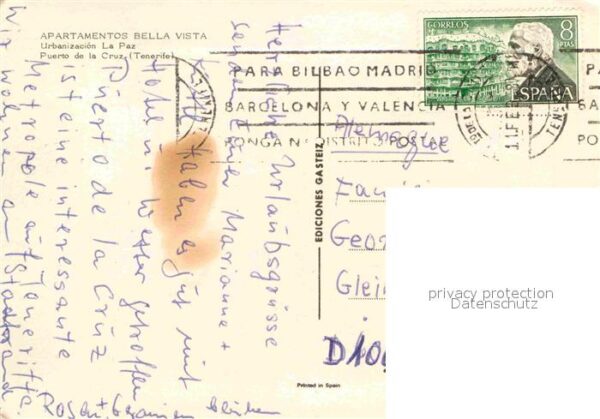 APARTAMENTOS BELLA VISTA
Urbanización La Paz
Puerto de la Cruz (Tenerife)
Herzliche Urlaubsgrüsse
senden Euch Marianne +
Haben es gut mit
Hotel u. Wetter getroffen
Puerto de la Cruz
ist eine interessante
Metropole auf Teneriffa.
Wir wohnen am Stadtrand
Rosen + Geranien blühen
EDICIONES GASTEIZ
Printed in Spain
CORREOS
8
PTAS
ESPAÑA
PARA BILBAO MADRID
BARCELONA Y VALENCIA
PONGA Nº DISTRITO POSTAL
PA
BA
PO
Alemagne
Fam
Geor
Glei
D 100
privacy protection
Datenschutz